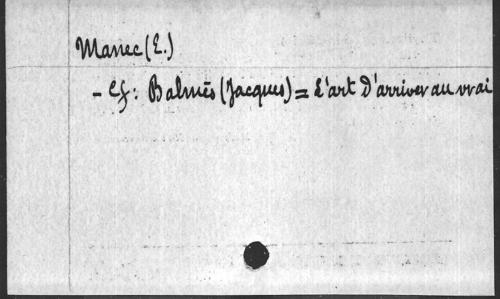 Manec (E.)
- Cf : Balmès (Jacques) = L'art d'arriver au vrai